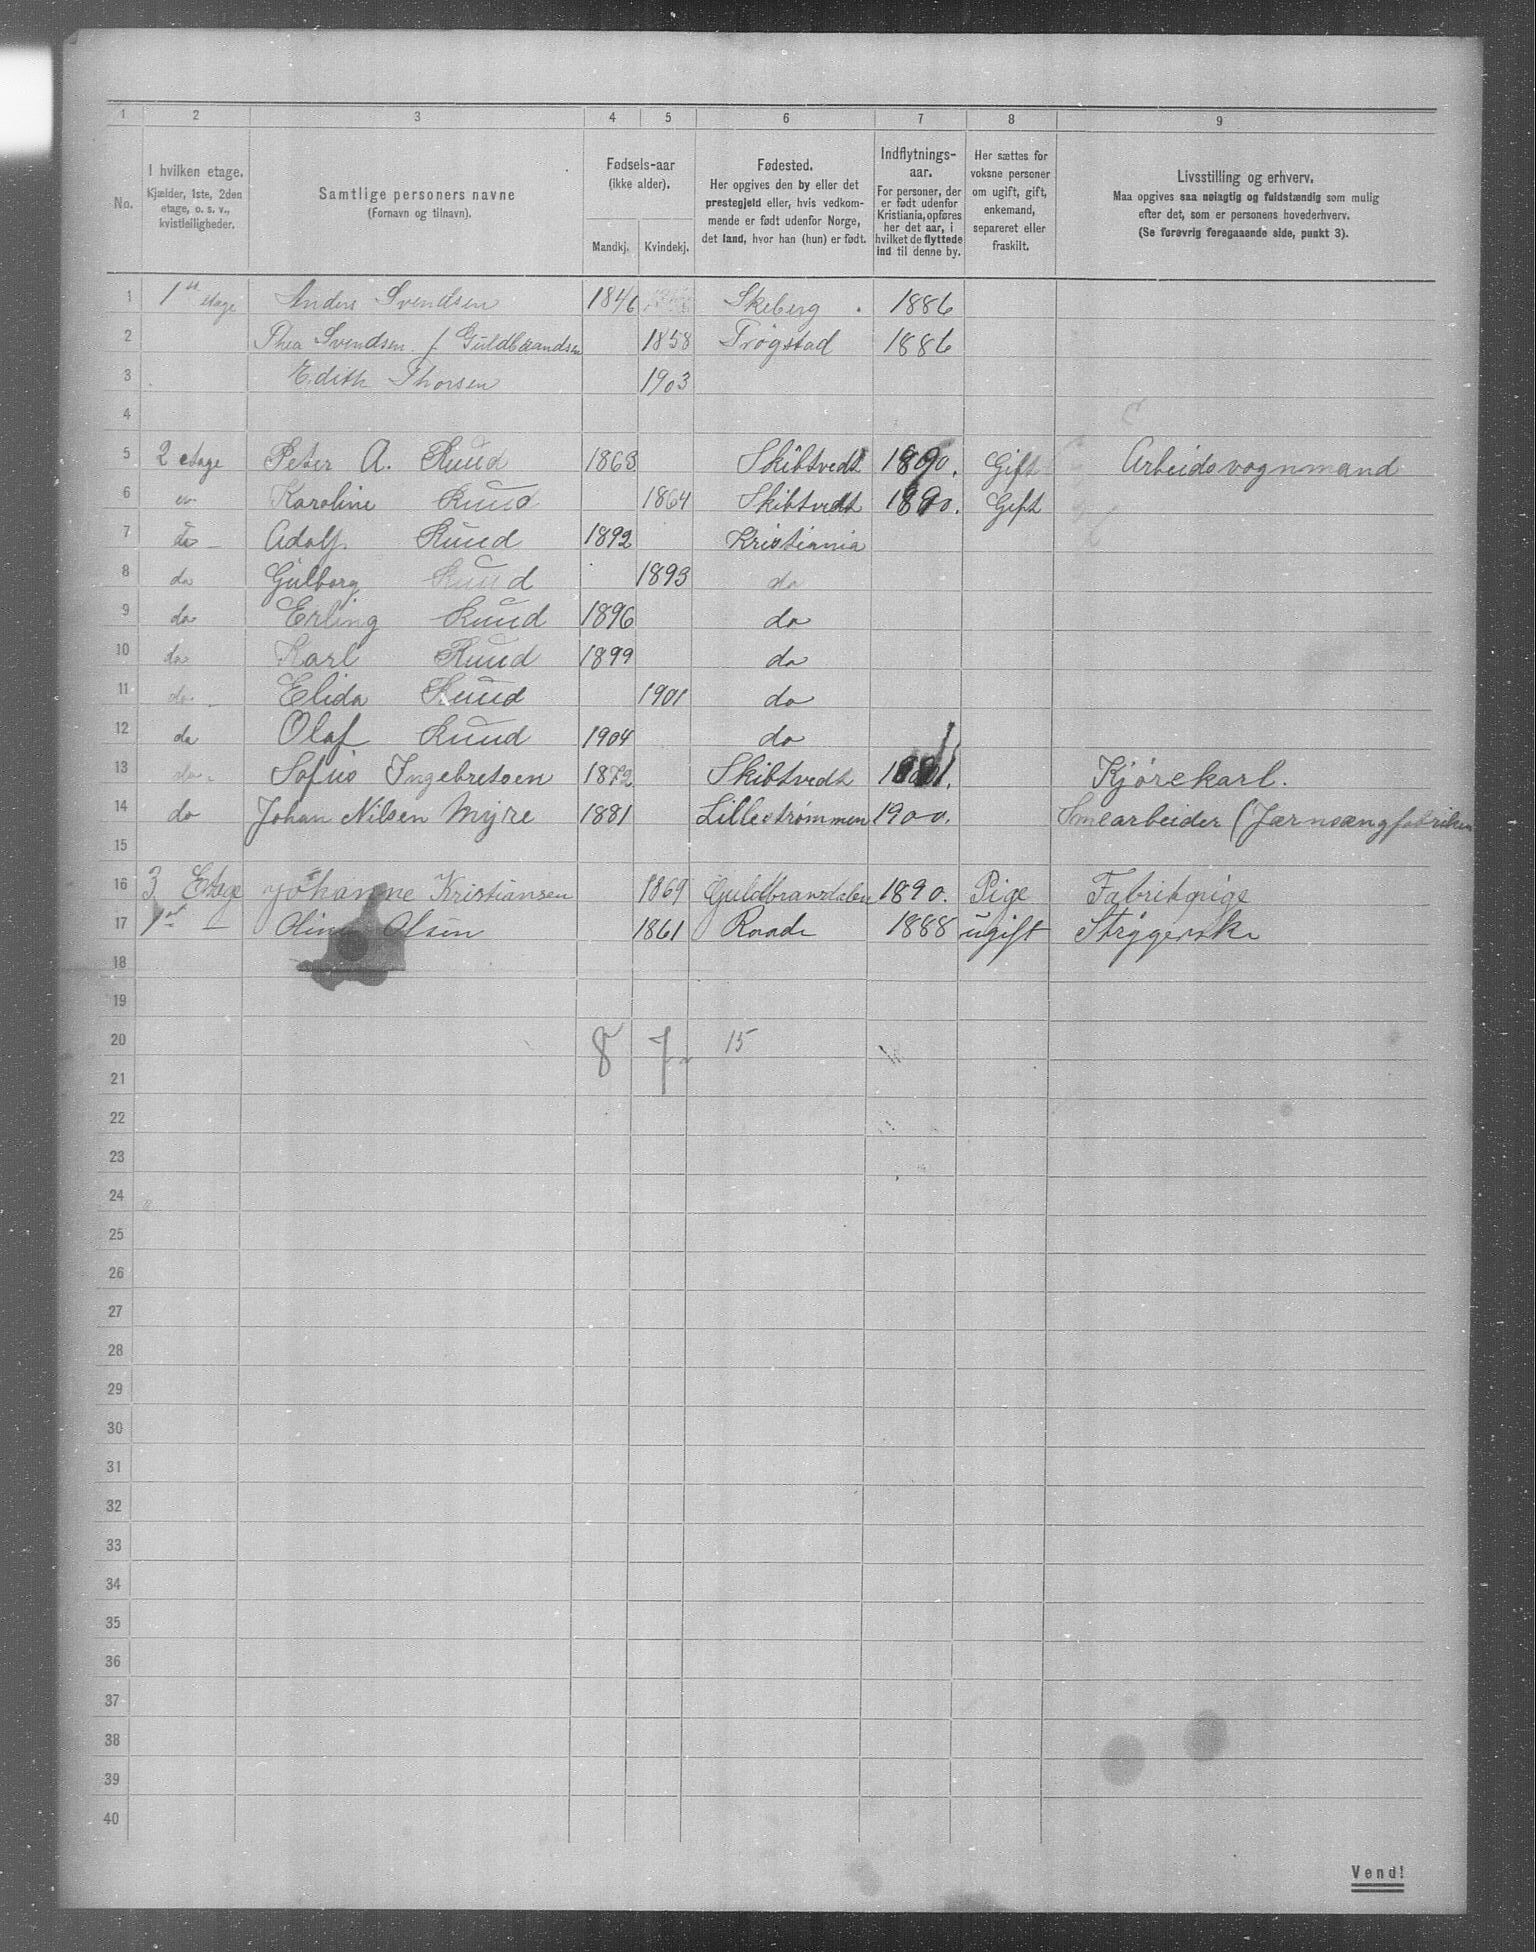 1 2 3 4 5 6 7 8 9
No.
I hvilken etage.
Kjælder, 1ste, 2den
etage, o. s. v.,
kvistleiligheder.
Samtlige personers navne
(Fornavn og tilnavn).
Fødsels-aar
(ikke alder).
Mandkj. Kvindekj.
Fødested.
Her opgives den by eller det
prestegjeld eller, hvis vedkom-
mende er født udenfor Norge,
det land, hvor han (hun) er født.
Indflytnings-
aar.
For personer, der
er født udenfor
Kristiania, opføres
her det aar, i
hvilket de flyttede
ind til denne by.
Her sættes for
voksne personer
om ugift, gift,
enkemand,
separeret eller
fraskilt.
Livsstilling og erhverv.
Maa opgives saa nøiagtig og fuldstændig som mulig
efter det, som er personens hovederhverv.
(Se forøvrig foregaaende side, punkt 3).
1 1st etage Anders Svendsen 1846 Skeberg 1886
2 Thea Svendsen f Guldbrandsen 1858 Trøgstad 1886
3 Edith Thorsen 1903
4
5 2 etage Peter A. Ruud 1863 Skibtvedt 1890. Gift Arbeidsvognmand
6 Karoline Ruud 1864 Skibtvedt 1890. Gift
7 do Adolf Ruud 1892 Kristiania
8 do Gulborg Ruud 1893 do
9 do Erling Ruud 1896 do
10 do Karl Ruud 1899 do
11 do Elida Ruud 1901 do
12 do Olaf Ruud 1904 do
13 do Sofus Ingebretsen 1872 Skibtvedt Kjørekarl.
14 do Johan Nilsen Myre 1881 Lillestrømmen 1900. (Jærnsængfabriken
15
16 3 Etage Johanne Kristiansen 1869 Guldbrandsdalen 1890. Pige Fabrikpige
17 1st Olsen 1861 Raade 1888 ugift Strygerske
18
19
20 8 7 15
21
22
23
24
25
26
27
28
29
30
31
32
33
34
35
36
37
38
39
40
Vend!